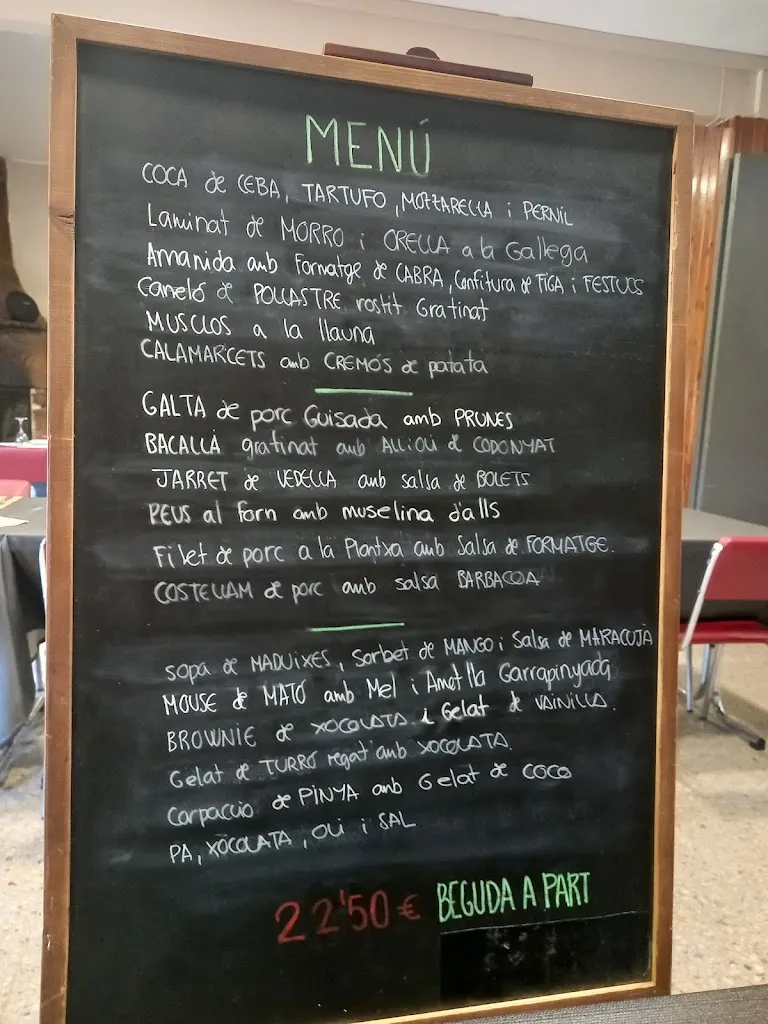 MENÚ
COCA de CEBA, TARTUFO, MOZZARELLA i PERNIL
Laminat de MORRO i ORELLA a la Gallega
Amanida amb Formatge de CABRA, Confitura de FIGA i FESTUCS
Caneló de POLLASTRE rostit Gratinat
MUSCLOS a la llauna
CALAMARCETS amb CREMÓS de patata
GALTA de porc Guisada amb PRUNES
BACALLÀ gratinat amb ALLiOLi de CODONYAT
JARRET de VEDELLA amb salsa de BOLETS
PEUS al forn amb muselina d'alls
Filet de porc a la Plantxa amb Salsa de FORMATGE.
COSTELLAM de porc amb salsa BARBACOA
Sopa de MADUIXES, Sorbet de MANGO i Salsa de MARACUJÀ
MOUSE de MATÓ amb Mel i Ametlla Garrapinyada
BROWNIE de XOCOLATA i Gelat de VAINILLA.
Gelat de TURRÓ regat amb XOCOLATA.
Carpaccio de PINYA amb Gelat de COCO
PA, XOCOLATA, OLI i SAL
22'50€ BEGUDA A PART